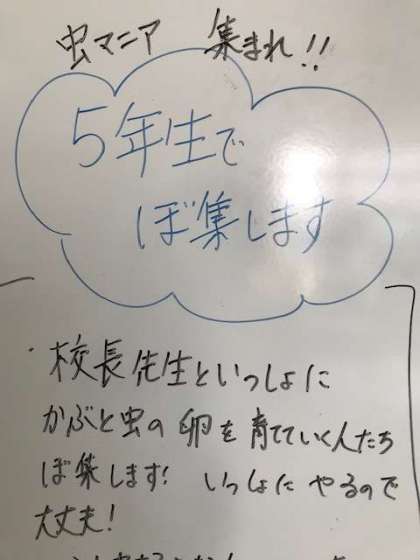 虫マニア 集まれ!!
5年生で
ぼ集します
・校長先生といっしょに
かぶと虫の卵を育てていく人たち
ぼ集します! いっしょにやるので
大丈夫!